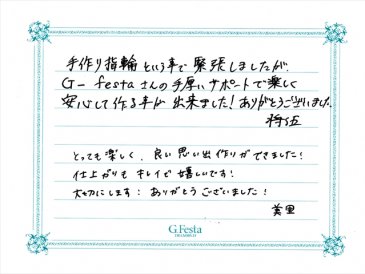 手作り指輪という事で緊張しましたが、
G-festaさんの手厚いサポートで楽しく
安心して作る事が出来ました！ありがとうございました。
将伍
とっても楽しく、良い思い出作りができました！
仕上がりもキレイで嬉しいです！
大切にします：ありがとうございました！
美里
G.Festa